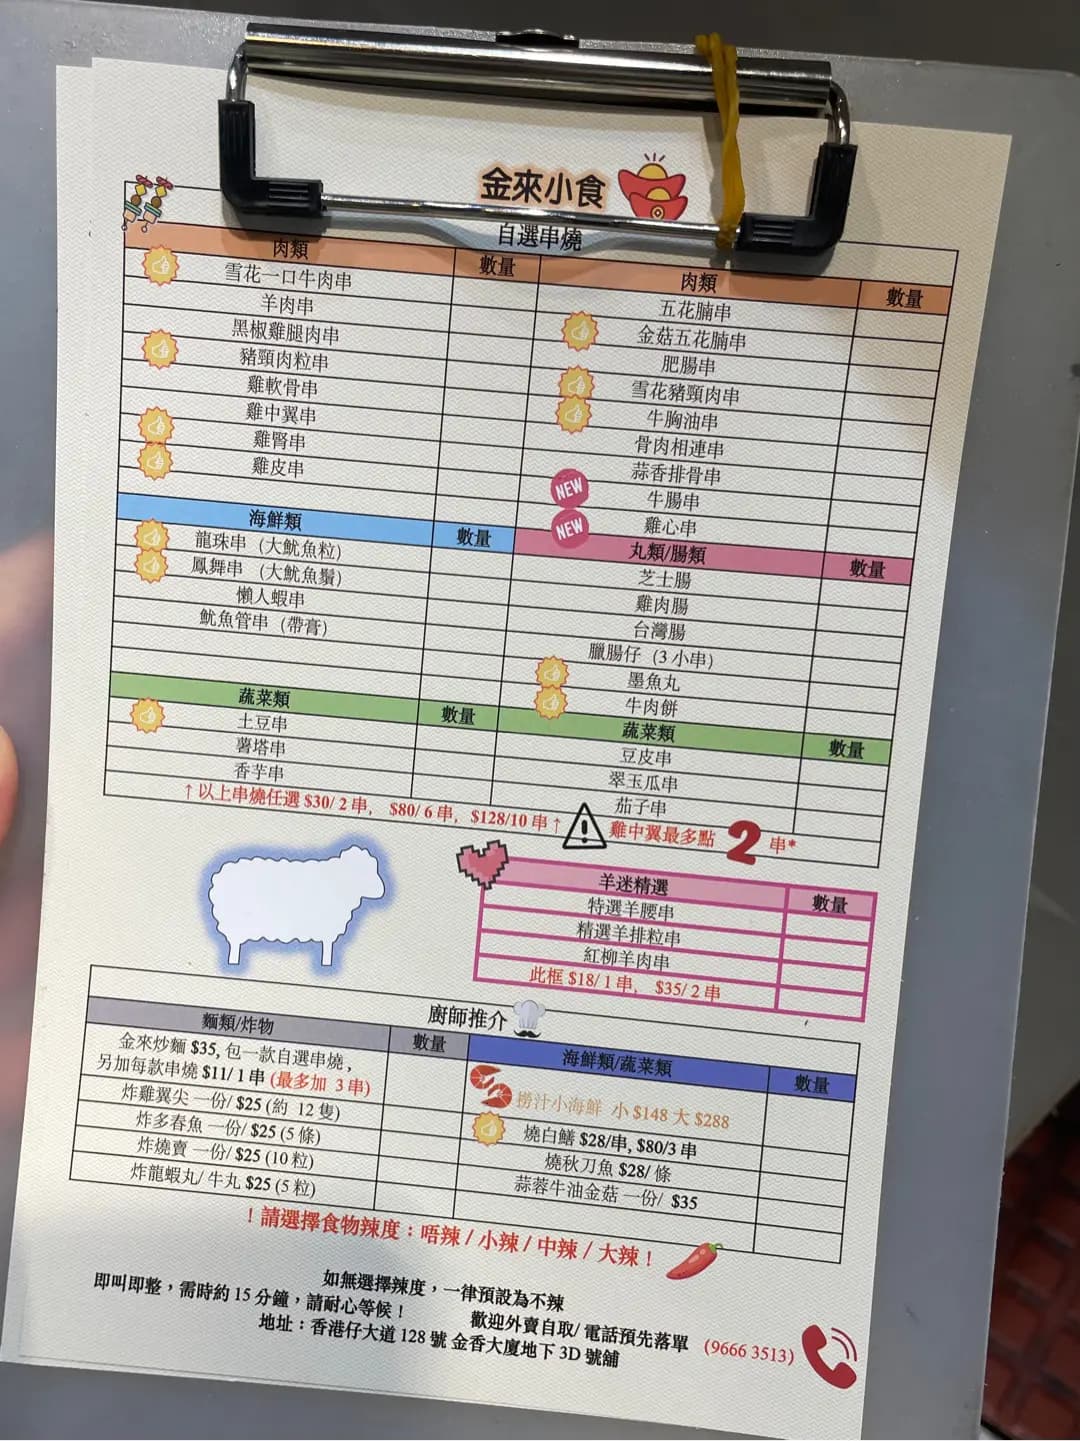 金來小食
自選串燒
肉類 數量
雪花一口牛肉串
羊肉串
黑椒雞腿肉串
豬頸肉粒串
雞軟骨串
雞中翼串
雞腎串
雞皮串
海鮮類 數量
龍珠串（大魷魚粒）
鳳舞串 （大魷魚鬚）
懶人蝦串
魷魚管串（帶膏）
蔬菜類 數量
土豆串
薯塔串
香芋串
肉類 數量
五花腩串
金菇五花腩串
肥腸串
雪花豬頸肉串
牛胸油串
骨肉相連串
蒜香排骨串
NEW 牛腸串
NEW 雞心串
丸類/腸類 數量
芝士腸
雞肉腸
台灣腸
臘腸仔（3 小串）
墨魚丸
牛肉餅
蔬菜類 數量
豆皮串
翠玉瓜串
茄子串
↑以上串燒任選 $30/ 2 串， $80/ 6 串，$128/10 串↑
雞中翼最多點 2 串*
羊迷精選 數量
特選羊腰串
精選羊排粒串
紅柳羊肉串
此框 $18/ 1 串， $35/ 2 串
廚師推介
麵類/炸物 數量
金來炒麵 $35, 包一款自選串燒，
另加每款串燒 $11/ 1 串 (最多加 3 串)
炸雞翼尖 一份/ $25 (約 12 隻)
炸多春魚 一份/ $25 (5 條)
炸燒賣 一份/ $25 (10 粒)
炸龍蝦丸/ 牛丸 $25 (5 粒)
海鮮類/蔬菜類 數量
撈汁小海鮮 小 $148 大 $288
燒白鱔 $28/串, $80/3 串
燒秋刀魚 $28/ 條
蒜蓉牛油金菇 一份/ $35
！請選擇食物辣度：唔辣 / 小辣 / 中辣 / 大辣！
如無選擇辣度，一律預設為不辣
即叫即整，需時約 15 分鐘，請耐心等候！
歡迎外賣自取/ 電話預先落單 (9666 3513)
地址：香港仔大道 128 號 金香大廈地下 3D 號舖